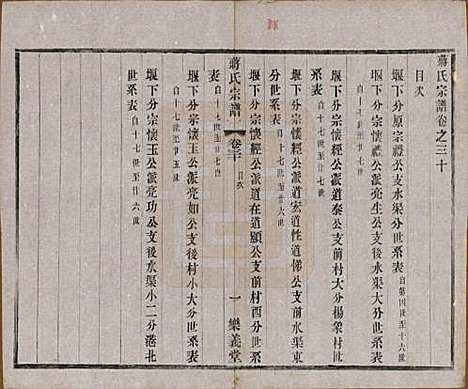 蔣氏宗譜卷之三十
目次
堰下分原宗禮公支水渠分世系表 自第四世至十六世
堰下分宗懷禮公派亮生公支大分世系表
自十七世至廿五世
堰下分宗懷經公派道泰公支楊象村世
系表 自十七世至廿
堰下分宗懷經公派道宏道性道悌公支水渠東
分世系表 自十七世至廿六世
堰下分宗懷經公派道在道顯公支前村酉分世
蔣氏宗譜 卷三十 目次 一 樂義堂
系表 自十七世至廿七世
堰下分宗懷玉公派亮如公支後村小大分世系
表 自十七世至廿五世
堰下分宗懷玉公派亮功公支後水渠小二分港北
世系表 自十七世至廿六世